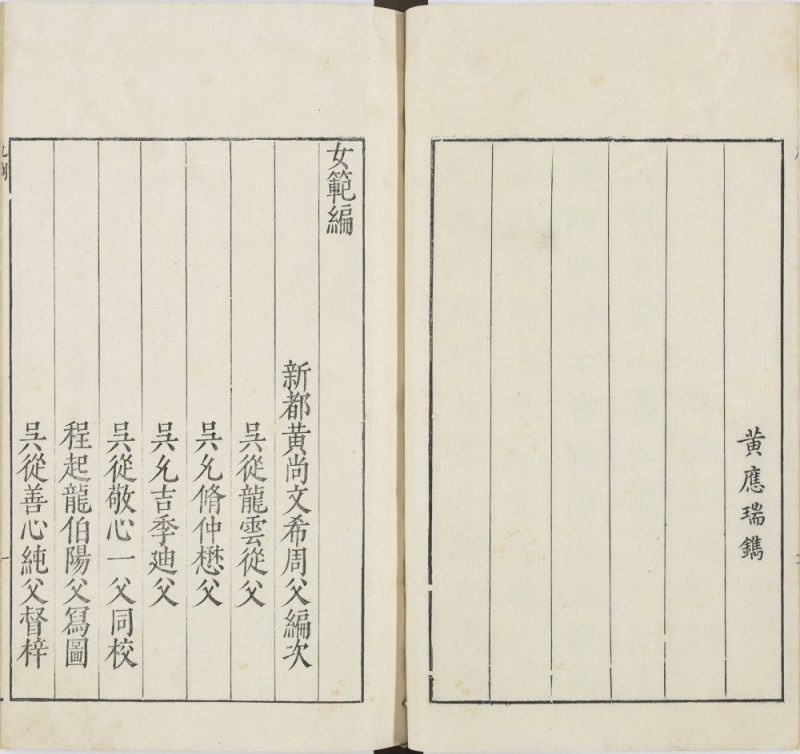 黃應瑞鐫
女範編
新都黃尚文希周父編次
吳從龍雲從父
吳允脩仲懋父
吳允吉季廸父
吳從敬心一父同校
程起龍伯陽父寫圖
吳從善心純父督梓